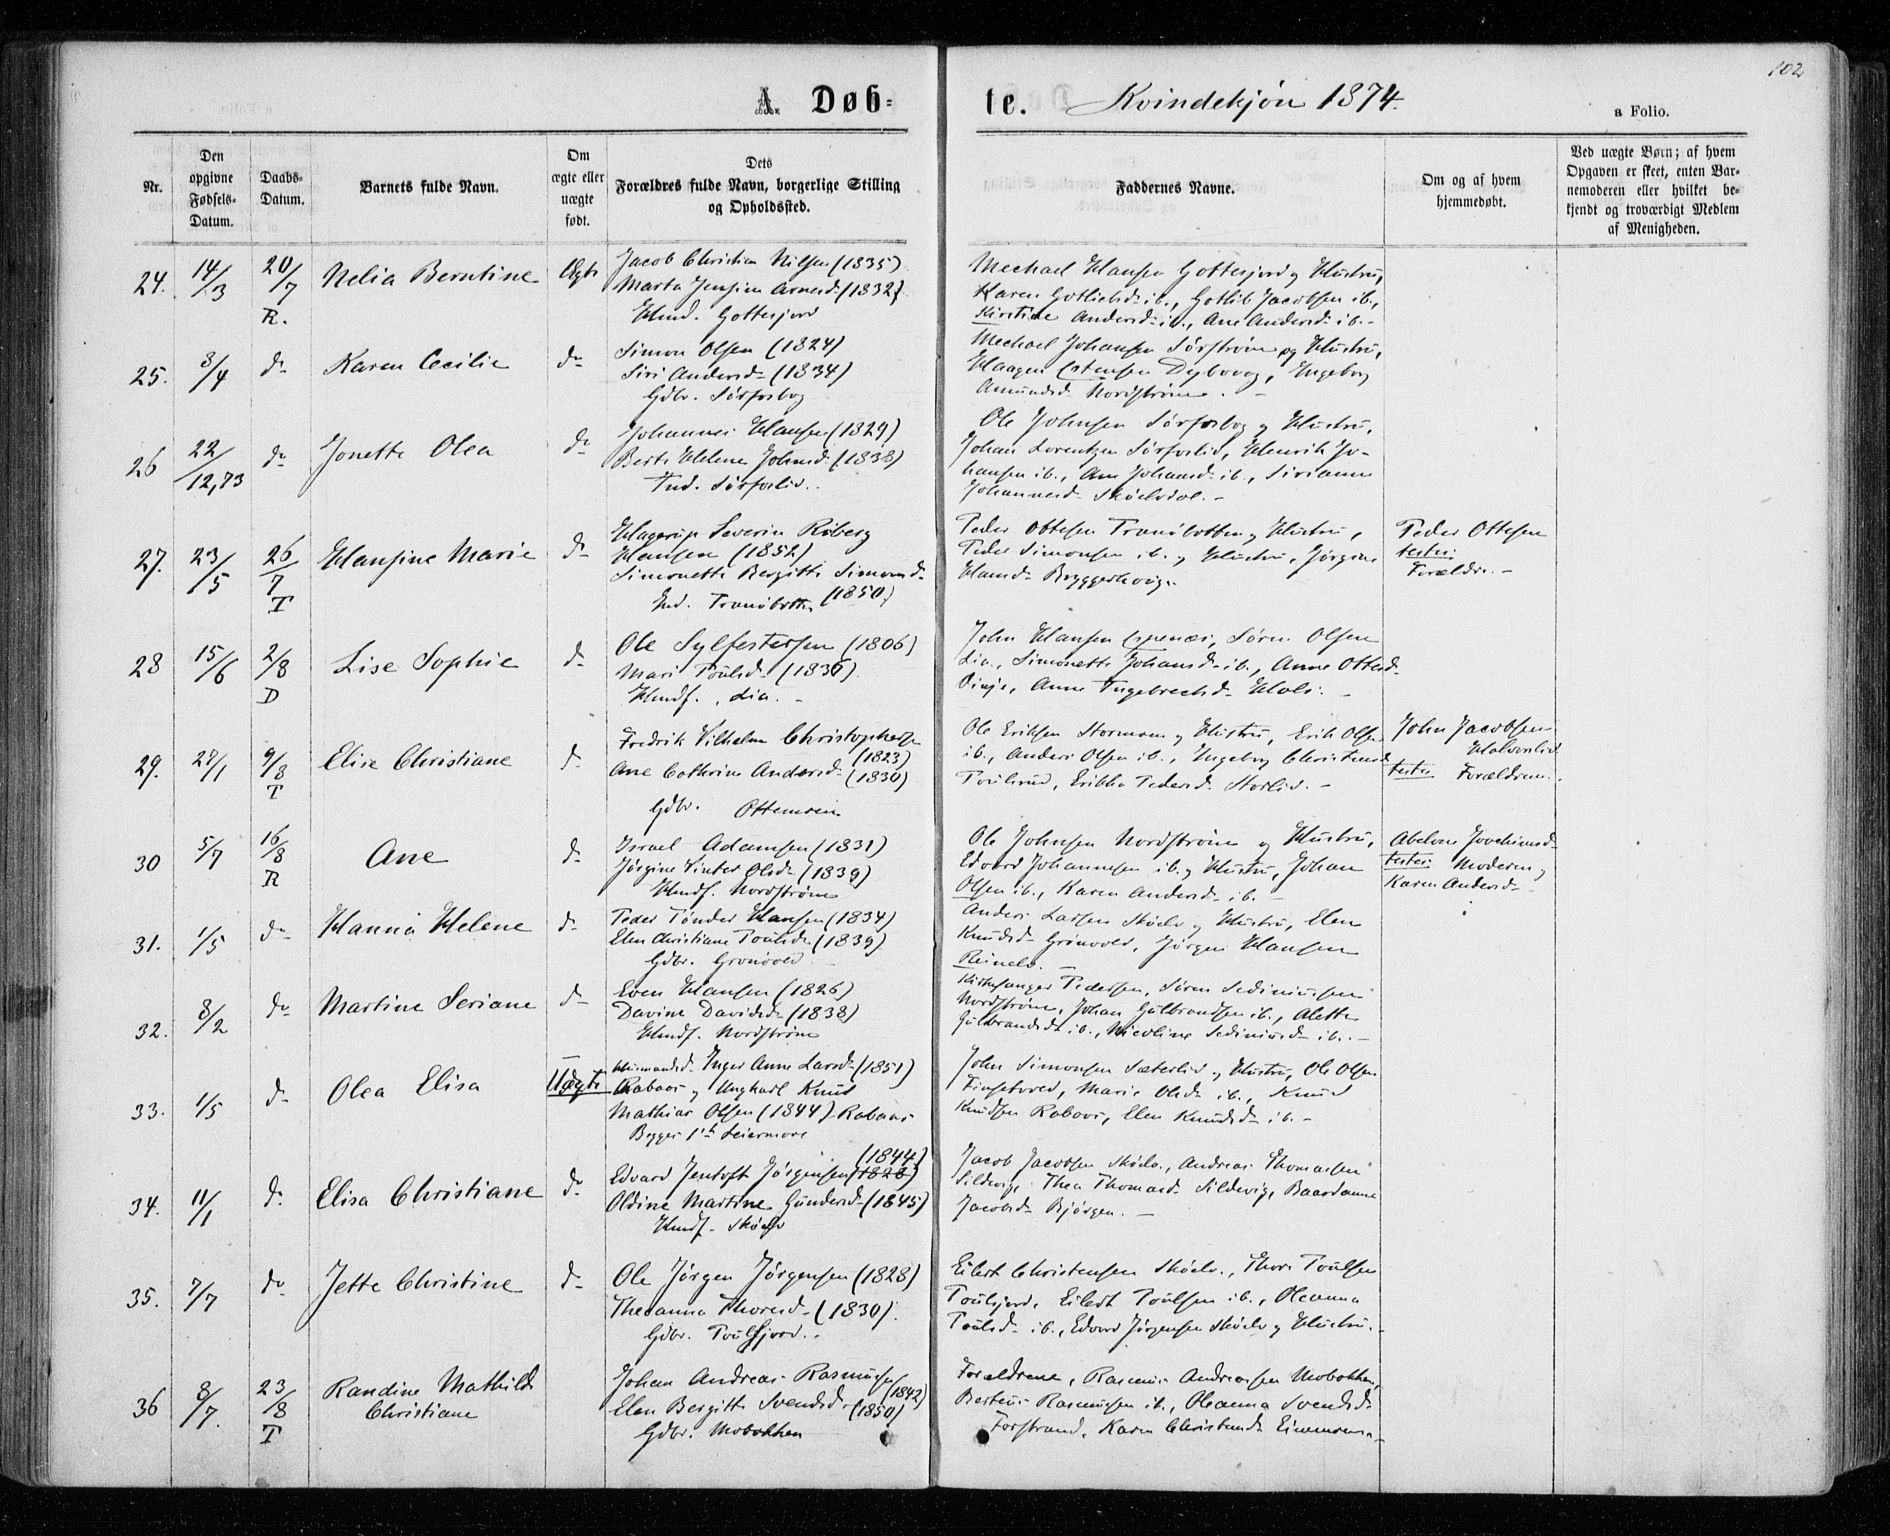 102
A. Døb-
te. Kvindekjøn 1874.
a Folio.
Nr.
Den opgivne Fødsels-Datum.
Daabs-Datum.
Barnets fulde Navn.
Om ægte eller uægte født.
Dets Forældres fulde Navn, borgerlige Stilling og Opholdssted.
Faddernes Navne.
Om og af hvem hjemmedøbt.
Ved uægte Børn; af hvem Opgaven er skeet, enten Barnemoderen eller hvilket bekjendt og troværdigt Medlem af Menigheden.
24. 14/3 20/7 R. Nelia Berntine Ægte
Jacob Christian Nilsen (1835)
Marta Jensine Arnesd. (1832)
Hmd. Gottesjord
Mechael Hansen Gottesjord og Hustru,
Karen Gotliebsd. ib., Gotlib Jacobsen ib.,
Kirstine Andersd. ib., Ane Andersd. ib. -
25. 8/4 do Karen Cecilie do
Simon Olsen (1824)
Siri Andersd. (1834)
Gdbr. Sørforbog
Mechael Johansen Sørstrøm og Hustru,
Haagen Estensen Dybvog, Ingeborg
Amundsd. Nordstrøm. -
26 22/12,73 do Jonette Olea do
Johannes Hansen (1829)
Berte Helene Johnsd. (1838)
Ind. Sørforliv.
Ole Johnsen Sørforbog og Hustru,
Johan Lorentzen Sørforliv, Henrik Jo-
hansen ib., Ane Johansd. ib., Sirianne
Johannesd. Skoelvdal. -
27. 23/5 26/7 T Hansine Marie do
Hagerup Severin Røberg
Hansen (1852)
Simonette Bergitte Simonsd.
(1850)
Ind. Tranøbotten
Peder Ottesen Tranøbotten og Hustru,
Peder Simonsen ib. og Hustru, Jørgine
Hansd. Bryggerhoug. -
Peder Ottesen
testes:
Forældre. -
28 15/6 2/8 D Lise Sophie do
Ole Sylfestersen (1806)
Mari Poulsd. (1836)
Hmdf. Lia. -
John Hansen Espenæs, Søren Olsen
Lia, Simonette Johansd. ib., Anne Ottesd.
Anne Ingebrectsd. Hals. -
29. 28/1 9/8 T Elise Christiane do
Fredrik Vilhelm Christophersen
(1823)
Ane Cathrine Andersd. (1830)
Gdbr. Ottemrein
Ole Eriksen Stormoen og Hustru, Erik Olsen
ib., Anders Olsen ib., Ingeborg Christensd.
Poulsrud, Erikka Pedersd. Storliv. -
John Jacobsen
Halvorsliv
testes Forældrene.
30 5/7 16/8 R Ane do
Israel Adamsen (1831)
Jørgine Vinter Olsd. (1839)
Hmdf. Nordstrøm
Ole Johnsen Nordstrøm og Hustru,
Edvard Johannesen ib. og Hustru, Johan
Olsen ib., Karen Andersd. ib. -
Abelone Joachimsd.
testes: Moderen og
Karen Andersd.
31. 1/5 do Hanna Helene do
Peder Tønder Hansen (1834)
Elen Christiane Poulsd. (1839)
Gdbr. Grønvold
Anders Larsen Skoelv og Hustru, Elen
Knudsd. Grønvold, Jørgen Hansen
Reinelv. -
32. 8/2 do Martine Seriane do
Even Hansen (1826)
Davine Davidsd. (1838)
Hmdf. Nordstrøm
Kirkesanger Pedersen, Søren Sediniussen
Nordstrøm, Johan Gulbrandsen ib., Alette
Gulbrandsd. ib., Nicoline Sediniusd. ib. -
33. 1/5 do Olea Elisa Uægte
Inger Anne Larsd. (1851)
Rabaas og Ungkarl Knud
Mathias Olsen (1844) Rabaas
Begges 1ste Leiermaal
John Simonsen Sæterliv og Hustru, Ole Olsen
Finsetvold, Marie Olsd. ib., Knud
Knudsen Rabaas, Elen Knudsd. ib. -
34. 11/1 do Elisa Christiane do
(1844)
Edvard Jentoft Jørgensen (1828)
Oldine Martine Gundersd. (1845)
Hmdf. Skoelv
Jacob Jacobsen Skoelv, Andreas Thomassen
Sildevig, Thea Thomasd. Sildevig, Baardanne
Jacobsd. Bjørgen. -
35. 7/7 do Jette Christine do
Ole Jørgen Jørgensen (1828)
Theanna Thoresd. (1830)
Gdbr. Poulsfjord.
Eilert Christensen Skoelv., Thore Poulsen
Poulsfjord, Eilert Poulsen ib., Oleanna
Poulsd. ib., Edvard Jørgensen Skoelv og Hustru. -
36 8/7. 23/8 T Randine Mathilde
Christiane
Johan Andreas Rasmusen
(1842)
Elen Bergitte Svendsd. (1850)
Gdbr. Mobakken
Forældrene, Rasmus Andreasen Mobakken,
Berteus Rasmusen ib., Oleanna Svendsd.
Forstrand, Karen Christensd.